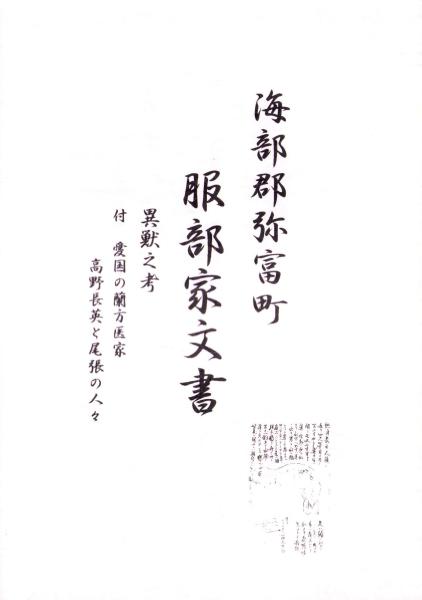 海部郡弥富町
服部家文書
異獣之考
付 愛国の蘭方医家
高野長英と尾張の人々